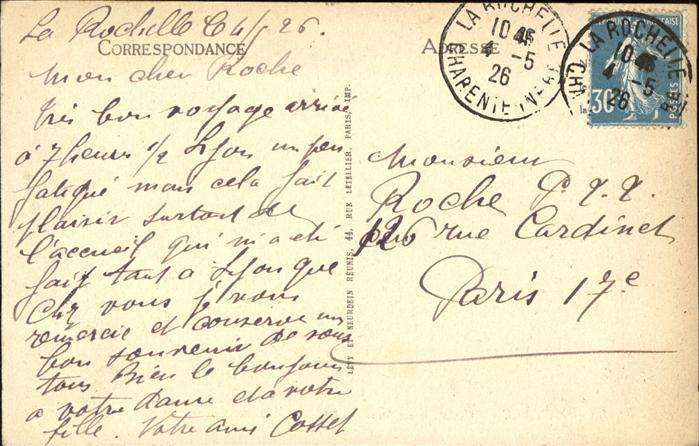 La Rochelle le 4/5 26.
CORRESPONDANCE
Mon cher Roche
Très bon voyage arrivé
à 7 heures 1/2 Lyon un peu
fatigué mais cela fait
plaisir surtout de
l'accueil qui m'a été
fait tant a Lyon que
chez vous je vous
remercie et conserve un
bon souvenir de vous
tous Bien le bonjour
a votre dame et a votre
fille. Votre ami Cosset
LEVY ET NEURDEIN RÉUNIS, 44, RUE LETELLIER, PARIS, IMP.
ADRESSE
Monsieur
Roche P.T.T.
126 rue Cardinet
Paris 17e
LA ROCHELLE
10 45
4 -5
26
CHARENTE INFRE
LA ROCHELLE
10 45
4 -5
26
30
POSTES